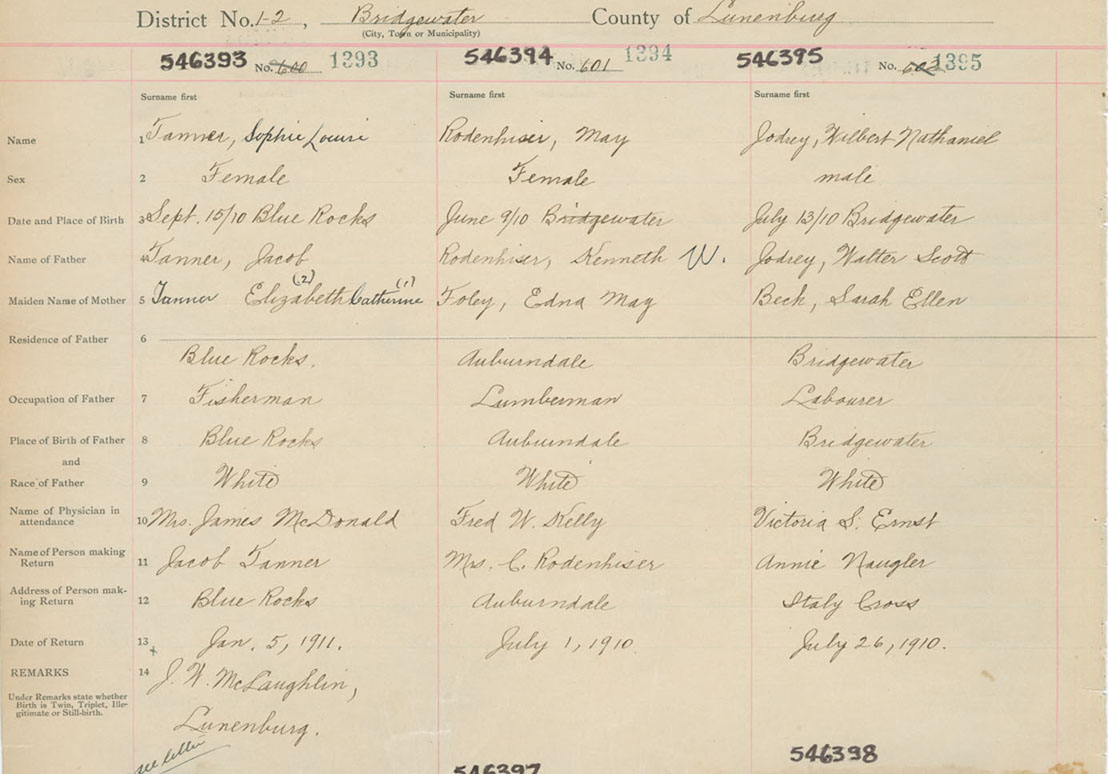 District No. 1-2, Bridgewater County of Lunenburg
(City, Town or Municipality)
546393 No. 600 1393 546394 No. 601 1394 546395 No. 602 1395
Surname first Surname first Surname first
Name 1 Tanner, Sophie Louise Rodenhiser, May Jodrey, Wilbert Nathaniel
Sex 2 Female Female male
Date and Place of Birth 3 Sept. 15/10 Blue Rocks June 9/10 Bridgewater July 13/10 Bridgewater
Name of Father 4 Tanner, Jacob Rodenhiser, Kenneth W. Jodrey, Walter Scott
(2) (1)
Maiden Name of Mother 5 Tanner Elizabeth Catherine Foley, Edna May Beck, Sarah Ellen
Residence of Father 6
Blue Rocks. Auburndale Bridgewater
Occupation of Father 7 Fisherman Lumberman Labourer
Place of Birth of Father 8 Blue Rocks Auburndale Bridgewater
and
Race of Father 9 White White White
Name of Physician in
attendance 10 Mrs. James McDonald Fred W. Kelly Victoria S. Ernst
Name of Person making
Return 11 Jacob Tanner Mrs. C. Rodenhiser Annie Naugler
Address of Person mak-
ing Return 12 Blue Rocks Auburndale Italy Cross
Date of Return 13 Jan. 5, 1911. July 1, 1910. July 26, 1910.
REMARKS 14 J. W. McLaughlin,
Under Remarks state whether
Birth is Twin, Triplet, Ille-
gitimate or Still-birth.
Lunenburg.
see letter
546397 546398